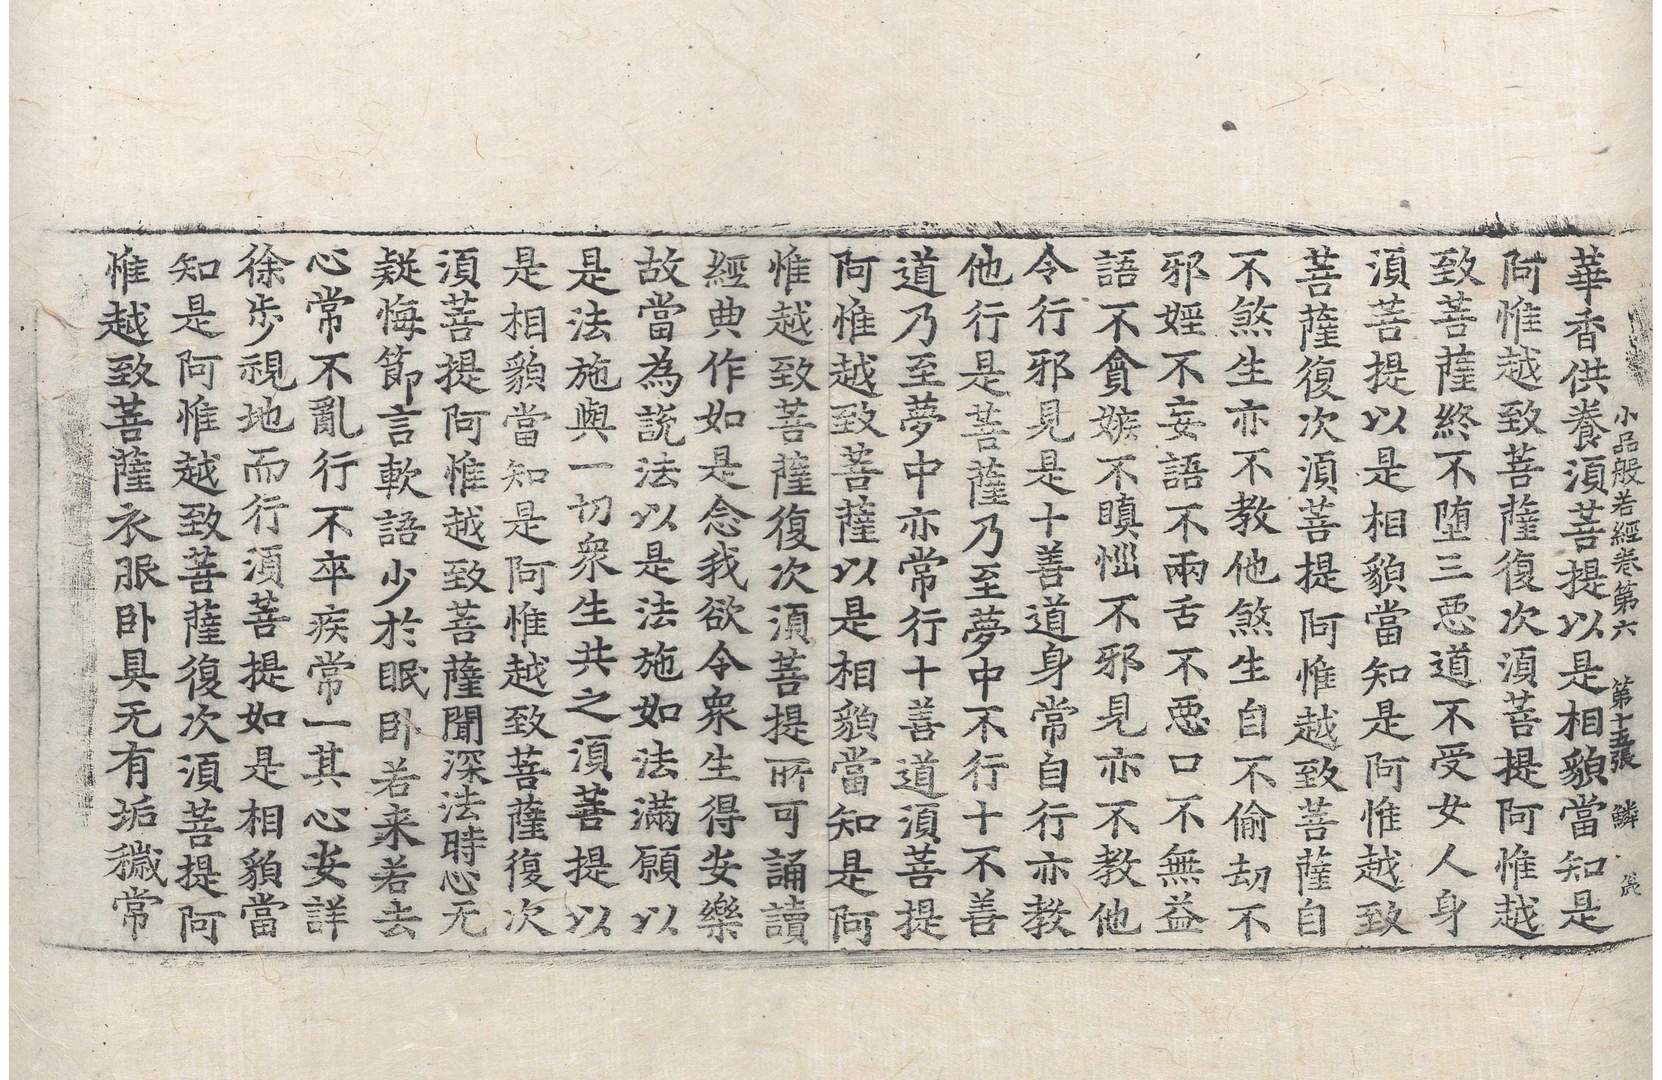 小品般若經卷第六　第十五張　鱗
華香供養湏菩提以是相貌當知是
阿惟越致菩薩復次湏菩提阿惟越
致菩薩終不墮三惡道不受女人身
湏菩提以是相貌當知是阿惟越致
菩薩復次湏菩提阿惟越致菩薩自
不煞生亦不教他煞生自不偷劫不
邪婬不妄語不兩舌不惡口不無益
語不貪嫉不瞋惱不邪見亦不教他
令行邪見是十善道身常自行亦教
他行是菩薩乃至夢中不行十不善
道乃至夢中亦常行十善道湏菩提
阿惟越致菩薩以是相貌當知是阿
惟越致菩薩復次湏菩提所可誦讀
經典作如是念我欲令衆生得安樂
故當為說法以是法施如法滿願以
是法施與一切衆生共之湏菩提以
是相貌當知是阿惟越致菩薩復次
湏菩提阿惟越致菩薩聞深法時心无
疑悔節言軟語少於眠卧若来若去
心常不亂行不卒疾常一其心安詳
徐步視地而行湏菩提如是相貌當
知是阿惟越致菩薩復次湏菩提阿
惟越致菩薩衣服卧具无有垢穢常